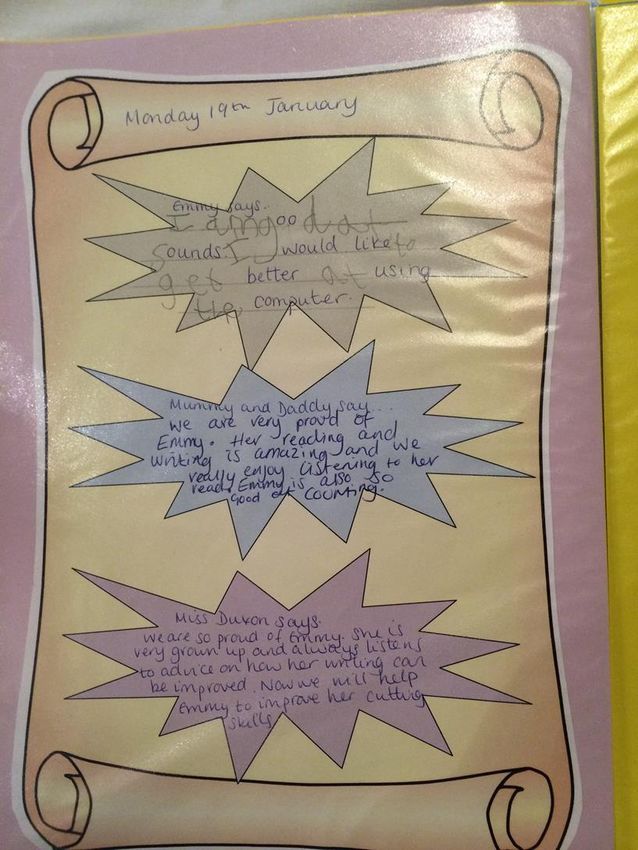 Monday 19th January
Emmy says..
I am good at
sounds. I would like to
get better at using
the computer.
Mummy and Daddy say...
we are very proud of
Emmy. Her reading and
writing is amazing and we
really enjoy listening to her
read. Emmy is also so
good at counting.
Miss Duxon says.
we are so proud of Emmy. She is
very grown up and always listens
to advice on how her writing can
be improved. Now we will help
Emmy to improve her cutting
skills